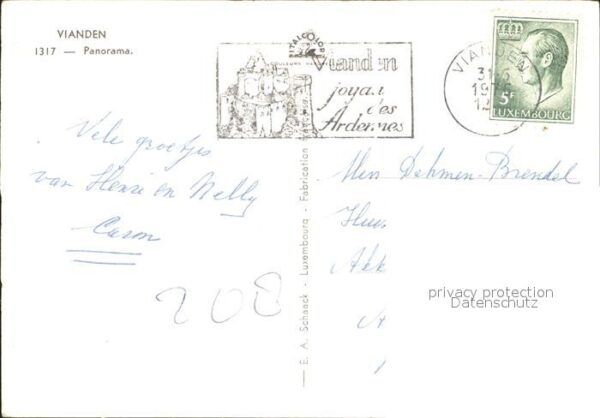 VIANDEN
1317 — Panorama.
ITALCOLOR
Vianden
joyau
des
Ardennes
VIANDEN
31
12
5F
LUXEMBOURG
Vele groetjes
van Henri en Nelly
Caron
208
E. A. Schaack - Luxembourg - Fabrication
Dahmen-Brendel
privacy protection
Datenschutz